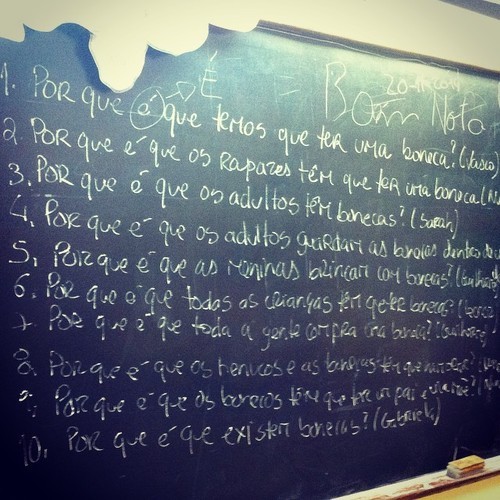 É = Bom Nota
1. Por que é que temos que ter uma boneca? (Vasco)
2. Por que é que os rapazes têm que ter uma boneca
3. Por que é que os adultos têm bonecas? (Sarah)
4. Por que é que os adultos guardam as bonecas dentro
5. Por que é que as meninas brincam com bonecas? (Guilherme
6. Por que é que todas as crianças têm que ter boneca?
7. Por que é que toda a gente compra uma boneca? (Guilherme)
8. Por que é que os e as bonecas têm que
9. Por que é que os bonecos têm que ter um pai e uma mãe?
10. Por que é que existem bonecas? (Gabriela)